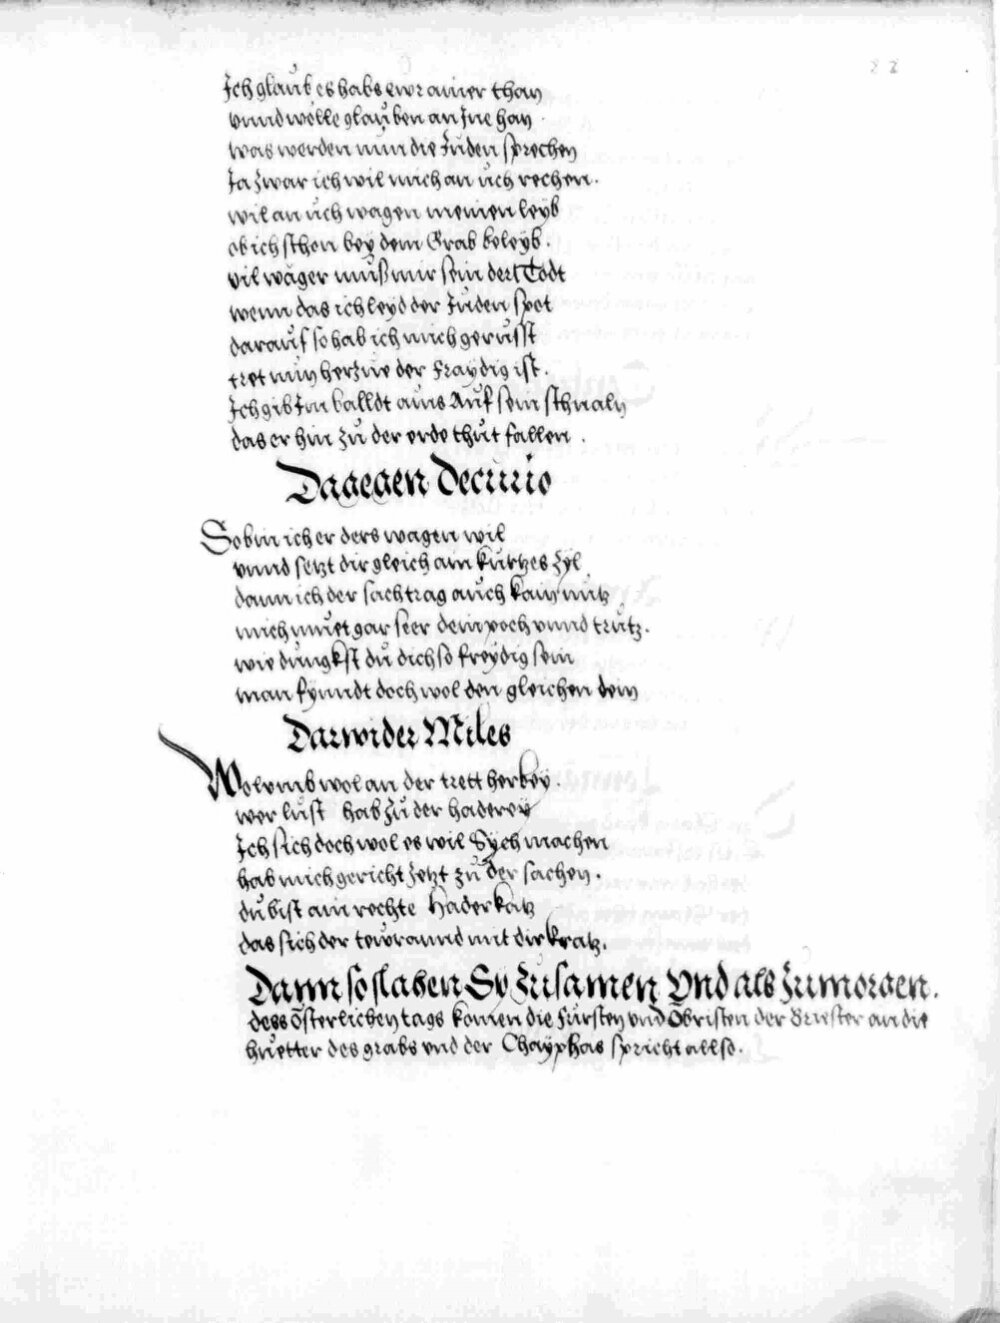 22
Ich glaub es habs ewr ainer than
vnnd welle glauben an Ine han
was werden nun die Juden sprechen
Ja zwar ich wil mich an üch rechen.
wil an üch wagen meinen leyb
ob ich schon bey dem Grab beleyb.
vil wäger muß mir sein der Todt
wenn das ich leyd der Juden spot
darauf so hab ich mich gerusst
tret nun herzue der fraydig ist.
Ich gib Im balldt ains Auf sein schnaln
das er hin zu der erde thut fallen.
Dagegen Decurio
So bin ich er ders wagen wil
vnnd setzt dir gleich ain kurtzes zyl
dann ich der sach trag auch kain nutz
mich muet gar seer dein poch vnnd trutz.
wie dungkst du dich so freydig sein
man fynndt doch wol den gleichen dein
Darwider Miles
Wol vmb wol an der trett herbey.
wer lust hab zu der haderey
Ich sich doch wol es wil Sych machen
hab mich gericht Jetzt zu der sachen.
du bist ain rechte Haderkatz
das sich der tewr amnd mit dir kratz.
Dann so slahen Sy zusamen Vnd als zumorgen.
dess österlichen tags komen die fürsten vnd Obristen der Briester an die
huetter des grabs vnd der Chayphas spricht allso.